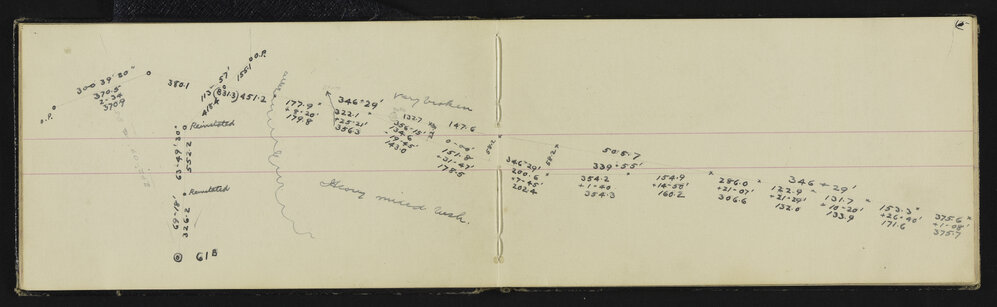 300 39' 30"
370.5
2-34
370.9
O.P.
380.1
57'
155.1
O.P.
113°
(831.3) 451.2
415.4
Reinstated
63-49'30"
552.2
Reinstated
69-18'
326.2
61B
177.9
+8-20'
179.8
346-29'
322.1
+25-21'
356.3
Very broken
132.7
356-15'
134.6
-19-45'
143.0
147.6
0-00'
151.8
-31-47'
178.5
Heavy mixed bush.
58.2
58.2
346-29'
200.6
+7-45'
202.4
505.7
339-55'
354.2
+1-40
354.3
154.9
+14-50'
160.2
286.0
+21-07'
306.6
346-29'
122.9
+21-29'
132.0
131.7
+10-20'
133.9
153.3
+26-40'
171.6
375.6
+1-08'
375.7